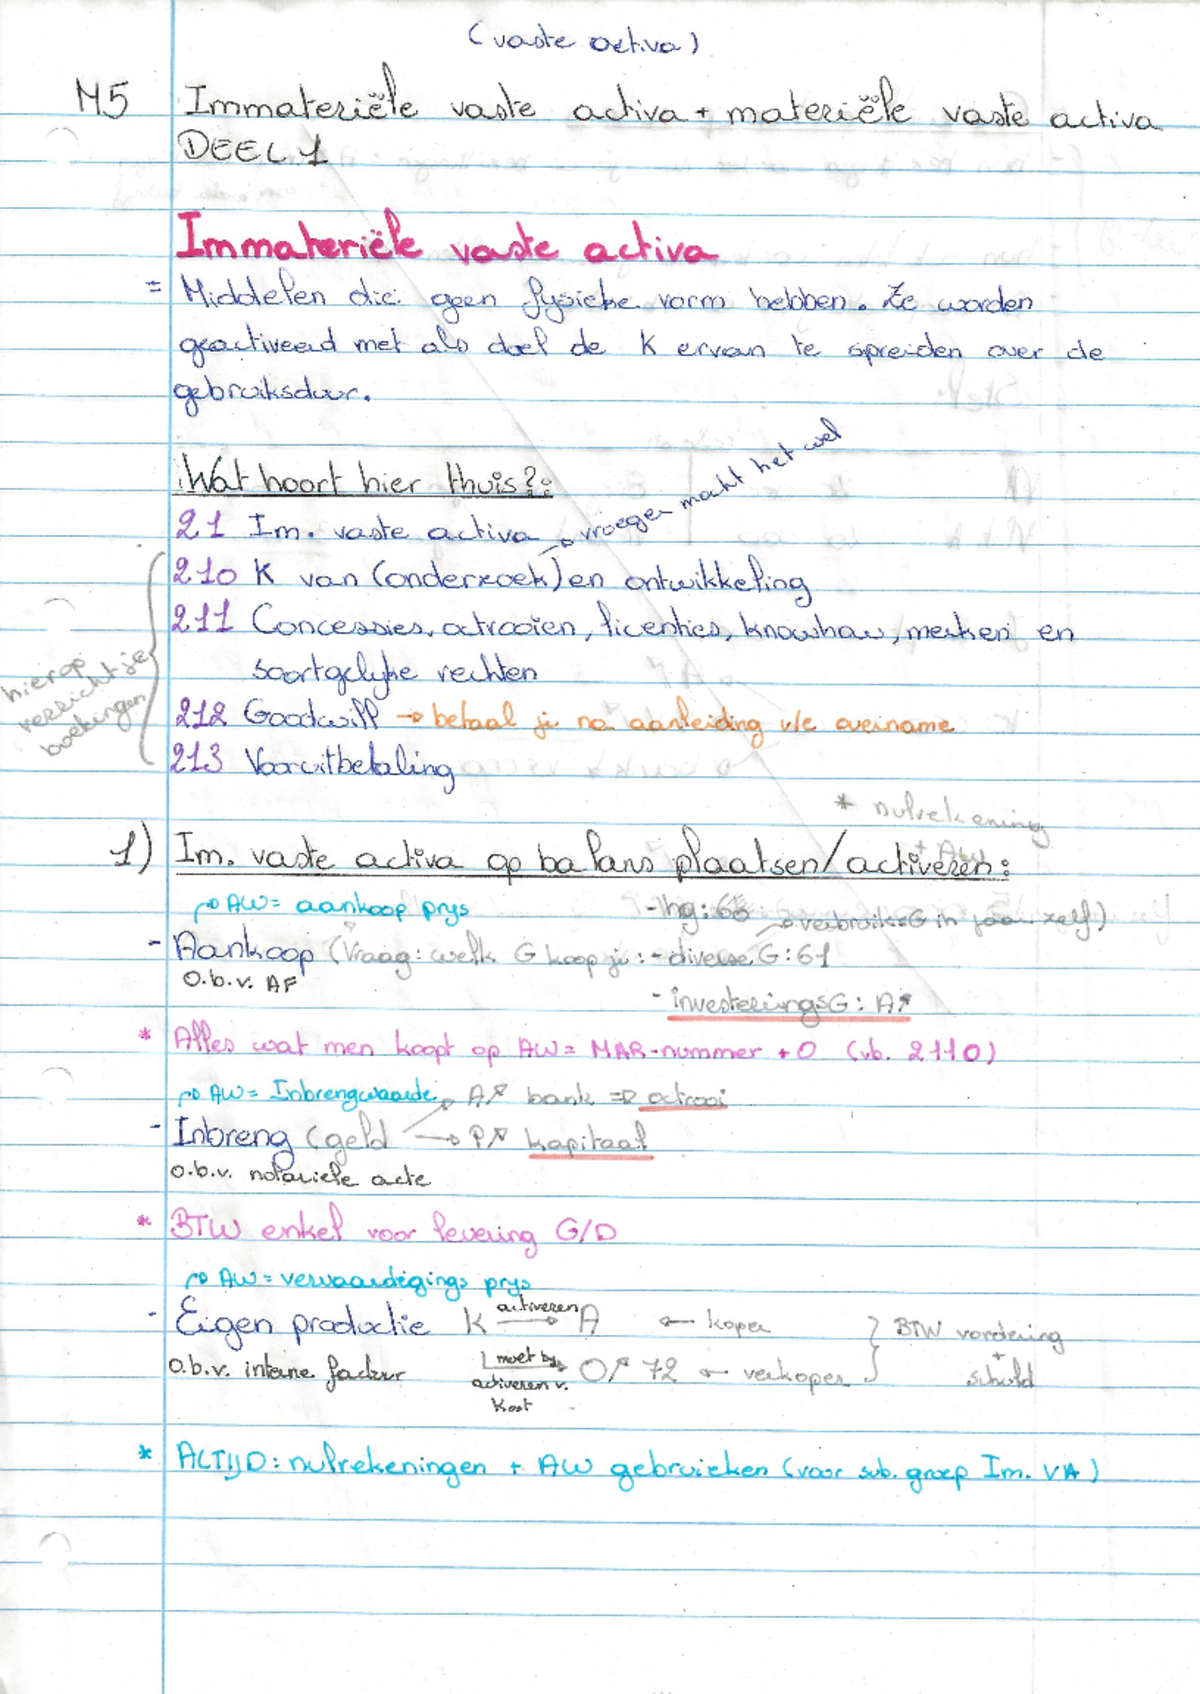 (vaste activa)
M5 Immateriële vaste activa + materiële vaste activa
DEEL 1
Immateriële vaste activa
= Middelen die geen fysieke vorm hebben. Ze worden
geactiveerd met als doel de K ervan te spreiden over de
gebruiksduur.
Wat hoort hier thuis?:
21 Im. vaste activa → vroeger mocht het wel
210 K van (onderzoek) en ontwikkeling
211 Concessies, octrooien, licenties, knowhow, merken en
soortgelijke rechten
hierop verricht je boekingen
212 Goodwill → betaal je na aanleiding v/e overname
213 Vooruitbetaling
* nulrekening
+ AW
1) Im. vaste activa op balans plaatsen/activeren:
→ AW = aankoop prijs
- hg: 60 → verbruiksG in jaar zelf)
- Aankoop (Vraag: welk G koop je: - diverse G: 61
O.b.v. AF
- investeringsG: A↗
* Alles wat men koopt op AW = MAR-nummer + 0 (vb. 2110)
→ AW = Inbrengwaarde → A↗ bank => octrooi
- Inbreng (geld → P↗ kapitaal
o.b.v. notariële acte
* BTW enkel voor levering G/D
→ AW = vervaardigings prijs
- Eigen productie K activeren → A ← koper } BTW vordering
o.b.v. interne factuur moet bij activeren v. kost → O↗ 72 ← verkoper + schuld
* ALTIJD: nulrekeningen + AW gebruiken (voor sub. groep Im. VA)